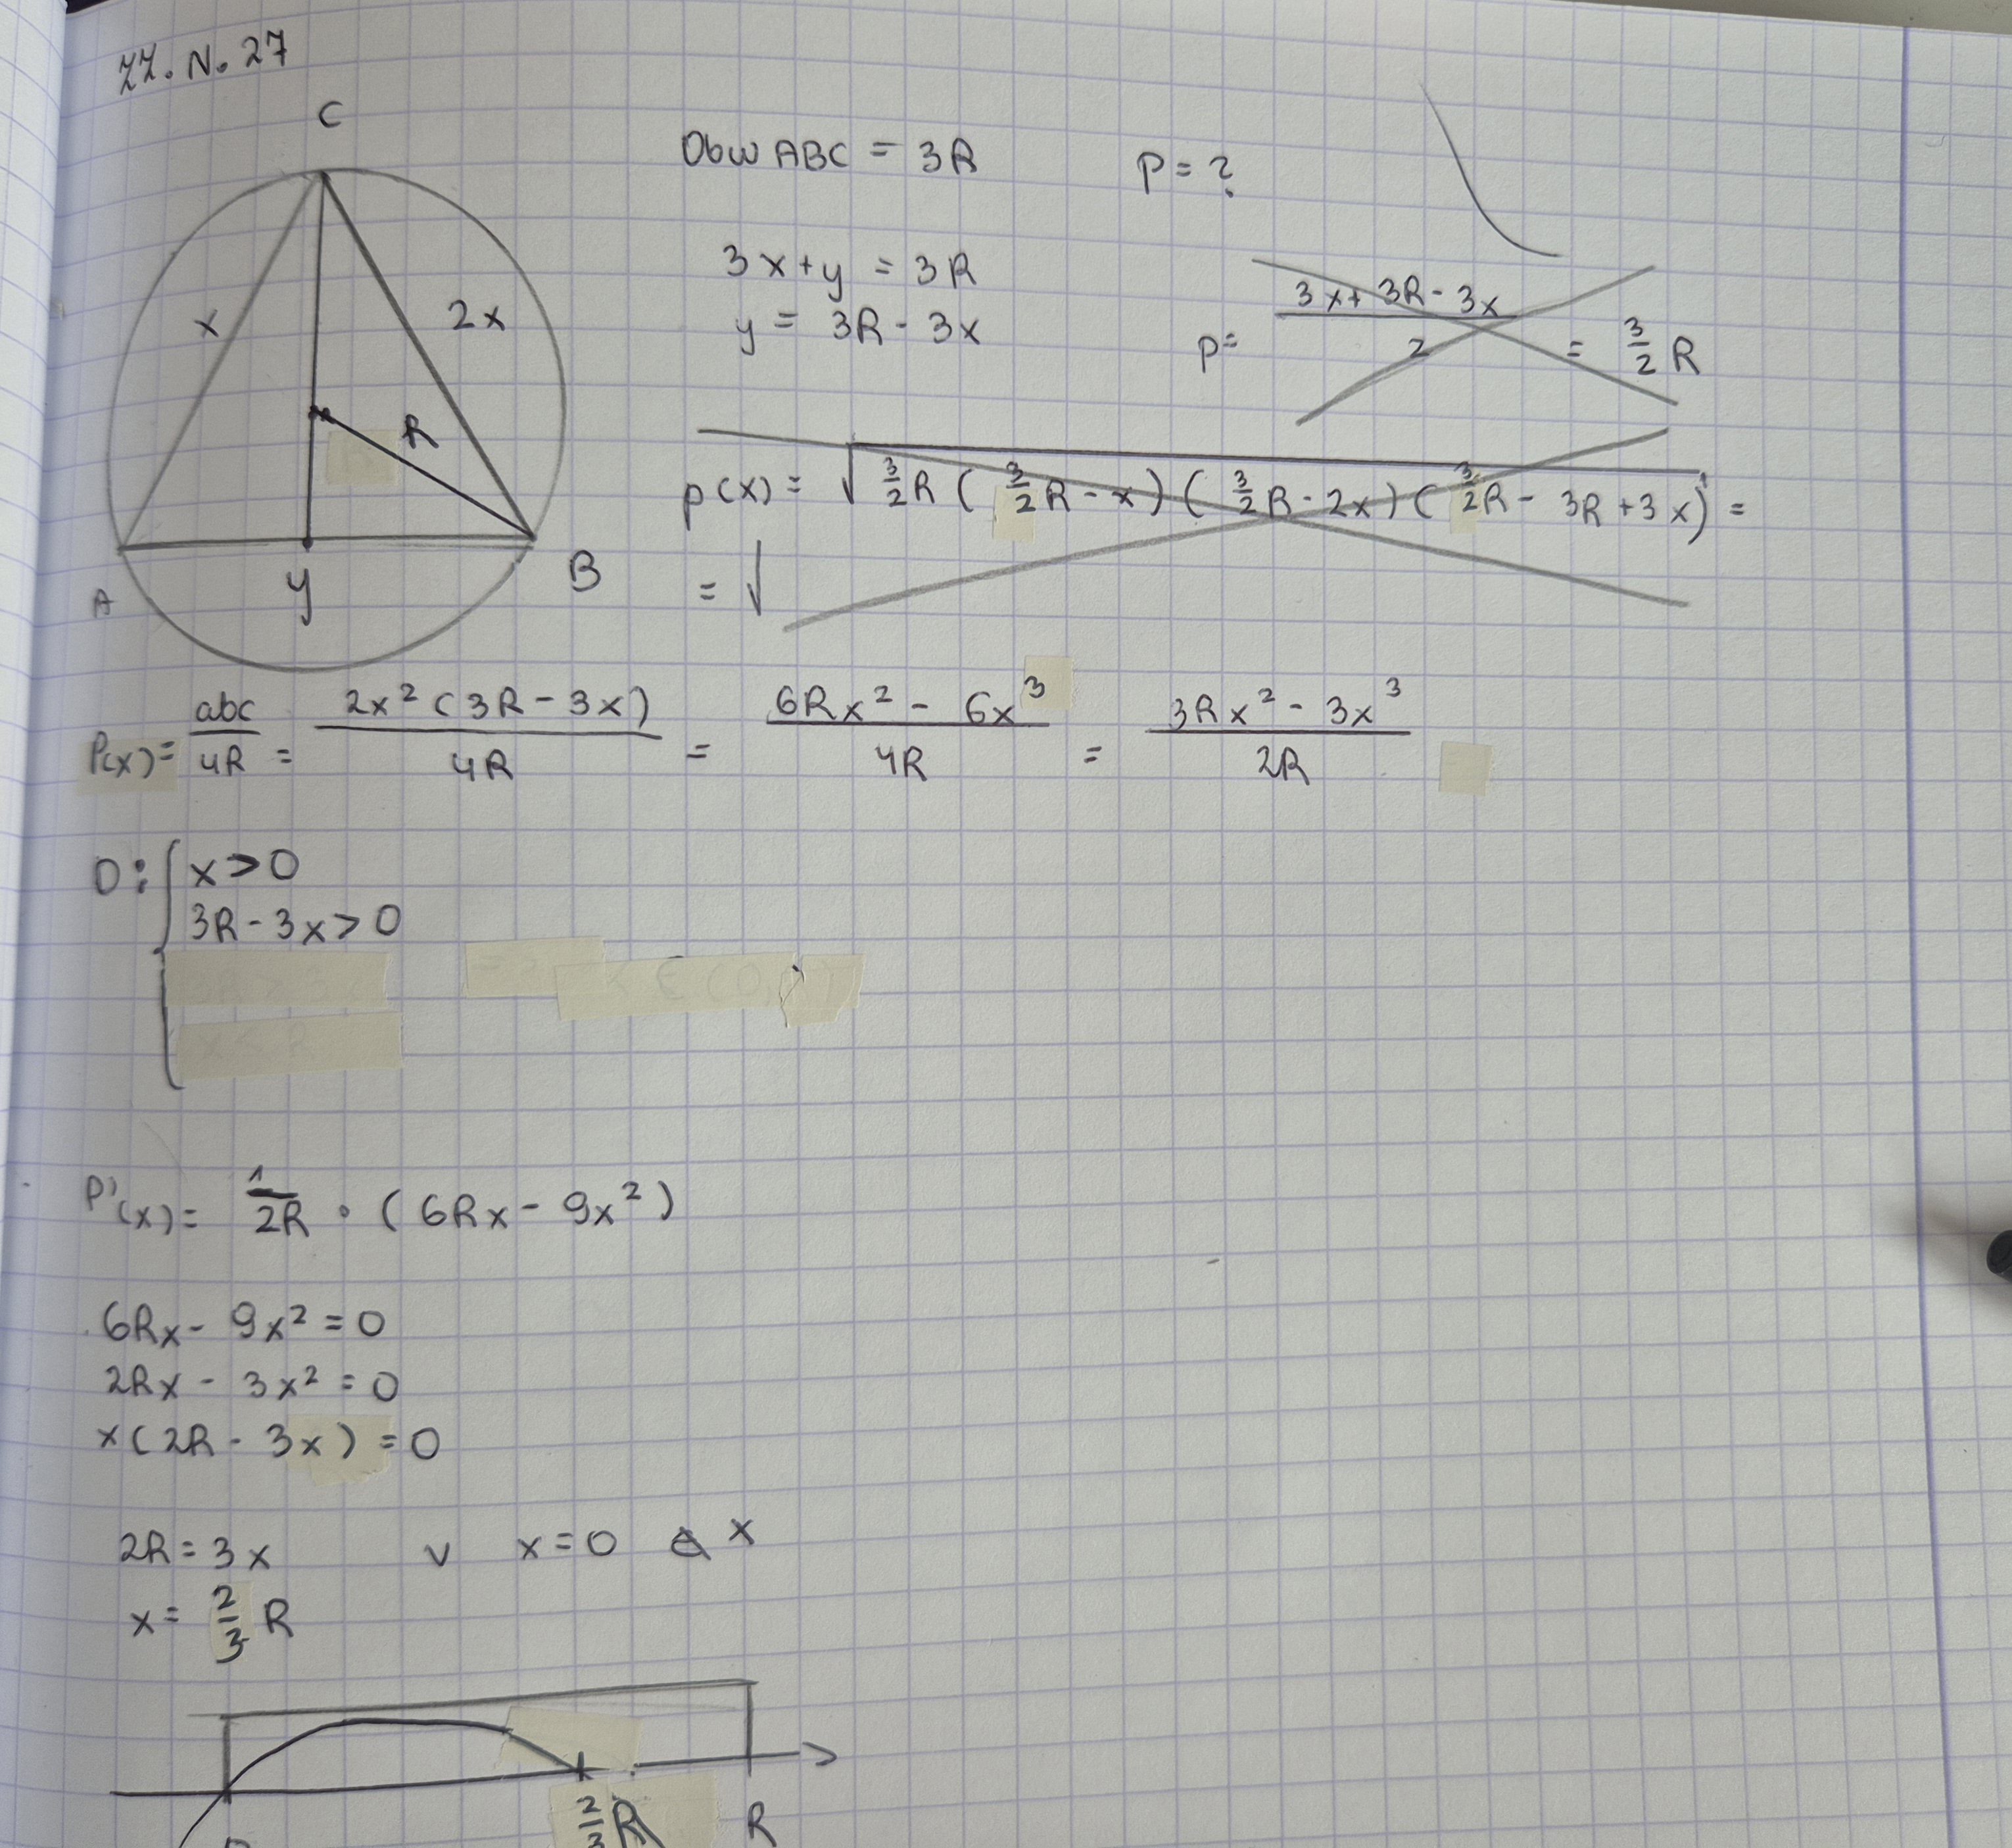 ZZ. N. 27
C
Obw ABC = 3R
P = ?
3x + y = 3R
y = 3R - 3x
p = (3x + 3R - 3x)/2 = 3/2 R
x
2x
R
p(x) = √(3/2 R (3/2 R - x) (3/2 R - 2x) (3/2 R - 3R + 3x)) =
= √
A
y
B
P(x) = abc/4R = 2x² (3R - 3x)/4R = (6Rx² - 6x³)/4R = (3Rx² - 3x³)/2R
D: { x > 0
3R - 3x > 0
P'(x) = 1/2R · (6Rx - 9x²)
6Rx - 9x² = 0
2Rx - 3x² = 0
x(2R - 3x) = 0
2R = 3x v x = 0 x
x = 2/3 R
2/3 R
R